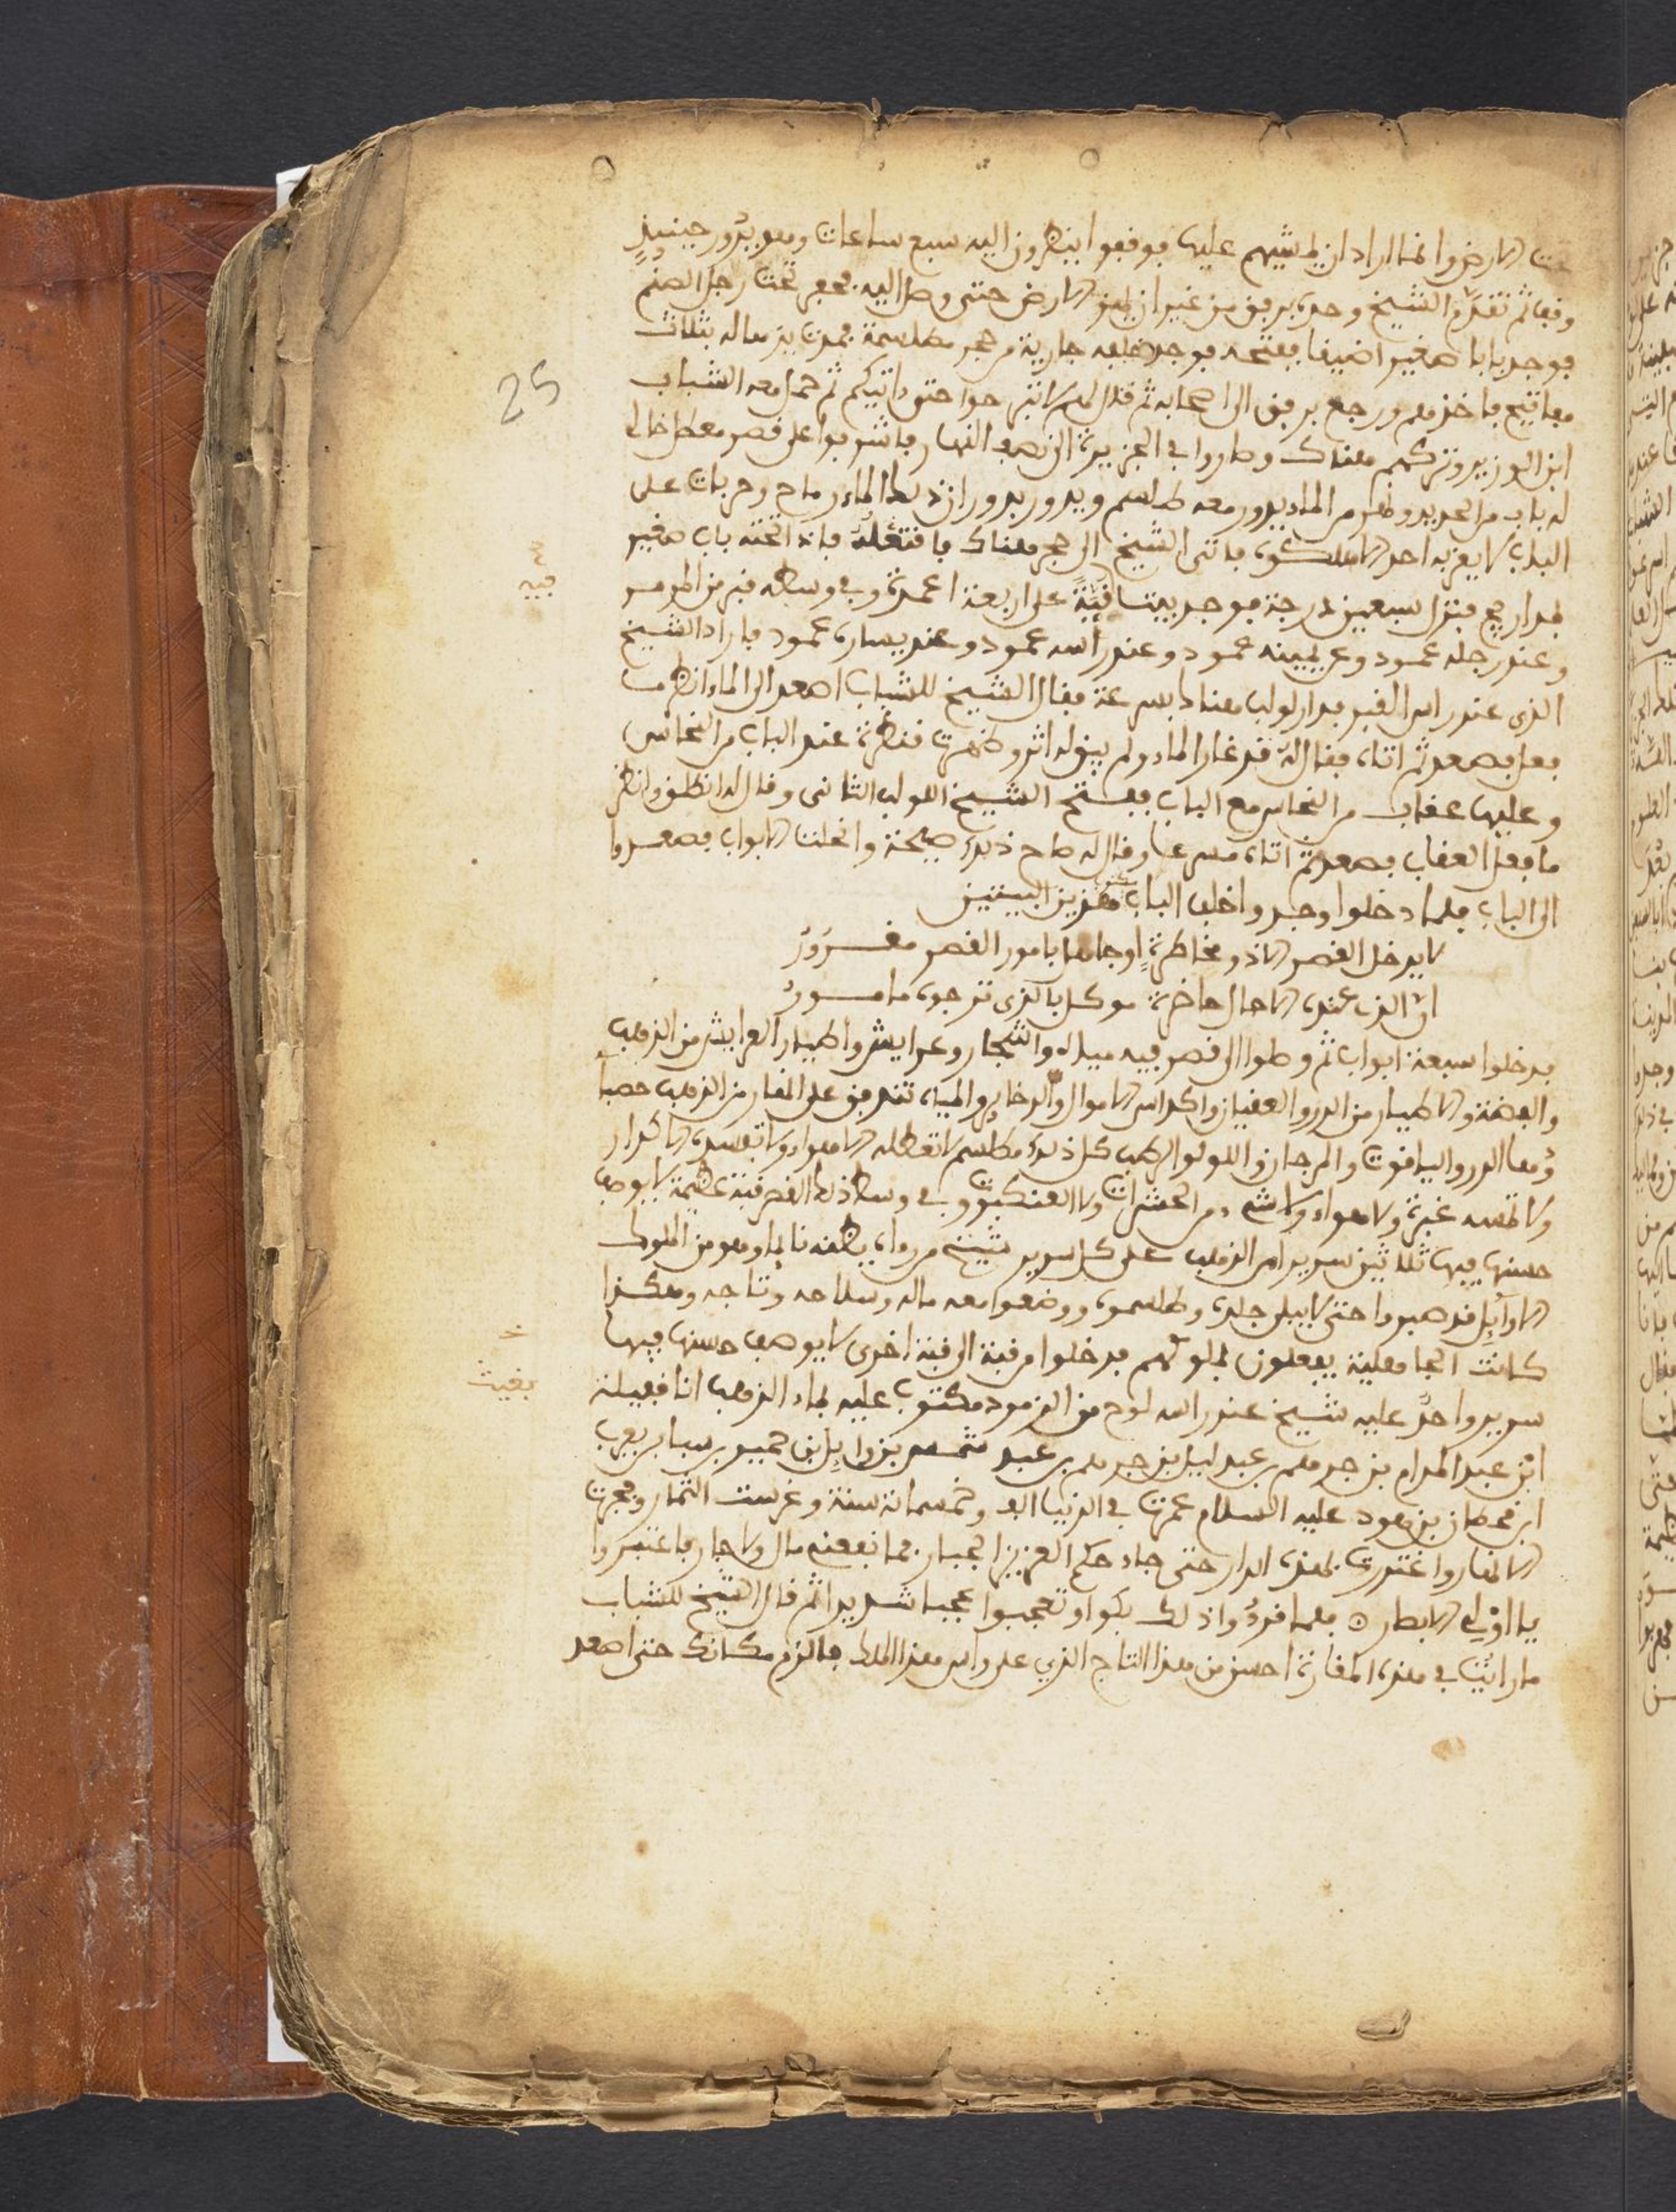 تحت الارض وانما اراد ان يمشيهم عليها فوقفوا ينظرون اليه سبع ساعات وهو يدور حينيذ
وقف ثم تقدم الشيخ وحده برفق من غير ان يهز الارض حتى وصل اليه فحفر تحت رجل الصنم
فوجد بابا صغيرا ضيقا ففتحه فوجد خلفه جارية من حجر مطلسمة فمدت يدها له بثلاث
مفاتيح فاخذهم ورجع برفق الى اصحابه ثم قال لهم لا تبرحوا حتى ناتيكم ثم حمل معه الشاب
ابن الوزير وتركهم هناك وصاروا في الجزيرة الى نصف النهار فاشرفوا على قصر معطل خالى
له باب من الحديد ونهر من الماء يدور معه طلسم ويدور بدوران ذلك الماء رماح وحربات على
الباب لا يقربه احد الا اهلكوه فاتى الشيخ الى حجر هناك فاقتلعه فاذا تحته باب صغير
بمدارج فنزل سبعين درجة فوجد بيتا فيه قبة على اربعة اعمدة وفي وسطه قبر من المرمر
وعند رجله عمود وعن يمينه عمود وعند راسه عمود وعند يساره عمود فادار الشيخ
الذى عند راس القبر فدار لولب هناك بسرعة فقال الشيخ للشاب اصعد الى الماء انظر ما
فعل فصعد ثم اتاه فقال له قد غار الماء ولم يبق له اثر وظهرت قنطرة عند الباب من النحاس
وعليها عقاب من النحاس مع الباب ففتح الشيخ اللولب الثانى وقال له انطلق وانظر
ما فعل العقاب فصعد ثم اتاه مسرعا وقال له صاح ذلك صيحة وانحلت الابواب فصعدوا
الى الباب فلما دخلوا وجدوا خلف الباب هذين البيتين
لا يدخل القصر الا ذو مخاطرة او جاهل بامور القصر مغرور
ان الذى عنده الاحال حاضرة موكل بالذى ترجوه مامور
فدخلوا سبعة ابواب ثم وصلوا الى قصر فيه مياه واشجار وعرايش واطيار العرايش من الذهب
والفضة والاطيار من الدر والعقيان واكداس الاموال والدخاير والمياه تندفق على انهار من الذهب حصبا
ؤها الدر والياقوت والمرجان واللولو الرطب كل ذلك مطلسم لا تعطله الاهواء ولا تفسده الاكدار
ولا تمسه غبرة ولا هواء ولا شىء من الحشرات ولا العنكبوت وفي وسط ذلك القصر قبة عظيمة لا يوصف
حسنها فيها ثلاثين سريرا من الذهب على كل سرير شيخ من رءاه يظنه نايما وهو من الملوك
الاوايل قد صبروا حتى لا يبلى جلده وطلسموه ووضعوا معه ماله وسلاحه وتاجه وهكذا
كانت الجاهلية يفعلون بملوكهم فدخلوا من قبة الى قبة اخرى لا يوصف حسنها فيها
سرير واحد عليه شيخ عند راسه لوح من الزمرد مكتوب عليه بماء الذهب انا قبيلة
ابن عبد المدام بن جرهم بن عبد ليل بن جرهم بن عبد شمس بن وايل بن حمير بن سبا بن يعرب
ابن قحطان بن هود عليه السلام عمرت في الدنيا الف وخمسمائة سنة وغرست الثمار وفجرت
الانهار واغتررت بهذه الدار حتى جاء حكم العزيز الجبار فما نفعنى مال ولا جار فاعتبروا
يا اولي الابصار ۞ فلما قرءوا ذلك بكوا وتعجبوا عجبا شديدا ثم قال الشيخ للشاب
ما رايت في هذه المغارة احسن من هذا التاج الذي على راس هذا الملك فالزم مكانك حتى اصعد
25
قبة
بقيت